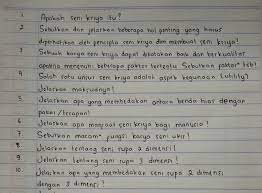 1 Apakah seni kriya itu?
2 Sebutkan dan jelaskan beberapa hal penting yang harus
diperhatikan oleh pencipta seni kriya dan membuat seni kriya!
3 Sebuah karya seni kriya dapat dikatakan baik dan berkualitas
apabila memenuhi beberapa faktor tertentu. Sebutkan faktor² tsb!
4 Salah satu unsur seni kriya adalah aspek kegunaan (utility)
Jelaskan maksudnya!
5 Jelaskan apa yang membedakan antara benda hias dengan
pakai/terapan!
6 Jelaskan apa manfaat seni kriya bagi manusia?
7 Sebutkan macam² fungsi karya seni ukir!
8 Jelaskan tentang seni rupa 2 dimensi!
9 Jelaskan tentang seni rupa 3 dimensi!
10 Jelaskan apa yang membedakan seni rupa 2 dimensi
dengan 3 dimensi?